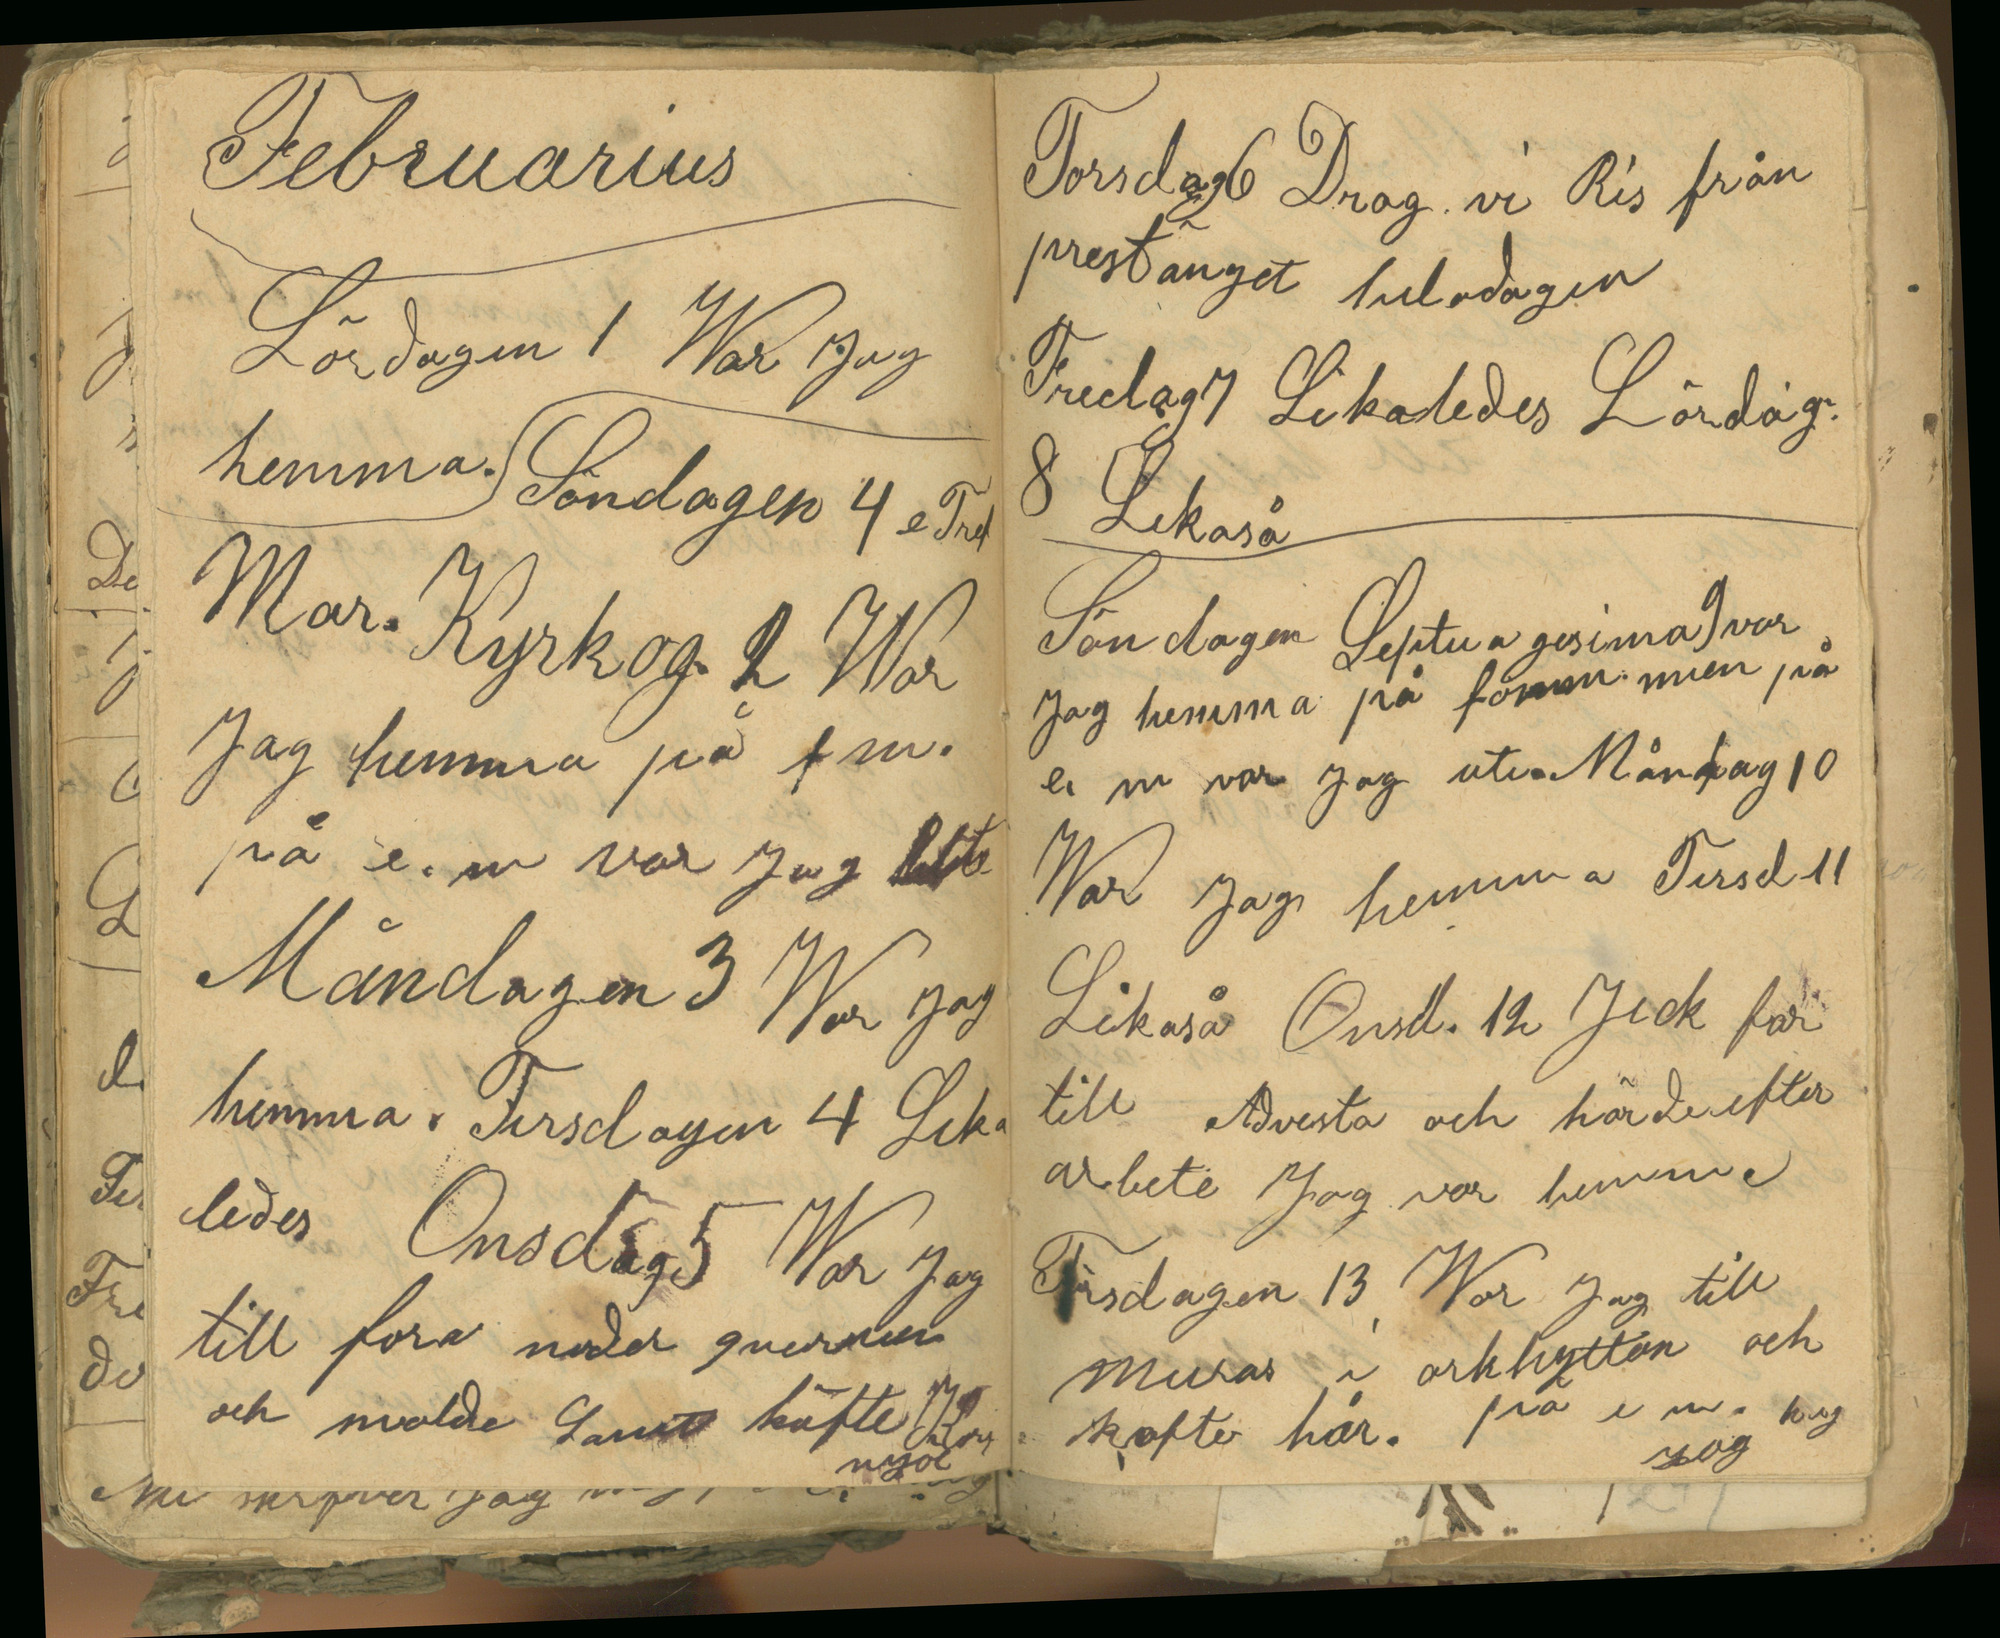 Februarius
Lördagen 1 War Jag
hemma. Söndagen 4 e Tred
Mar. Kyrkog. 2 War
Jag hemma på f m.
på e. m var Jag
Måndagen 3 War Jag
hemma. Tirsdagen 4 Lika
ledes Onsdag 5 War Jag
till fora neder quernen
och malde Samt köfte
Torsdag 6 Drog vi Ris från
prestänget heladagen
Fredag 7 Likaledes Lördag.
8 Likaså
Söndagen Septuagesima 9 var
Jag hemma på men på
e m var Jag ute. Måndag 10
War Jag hemma Tirsd 11
Likaså Onsd. 12 Jick far
till Advesta och hörde efter
arbete Jag var hemma
Tirsdagen 13 War Jag till
Muras i orkhyttan och
kofte hår. på e m. hug
Jag
Nu skrifver Jag